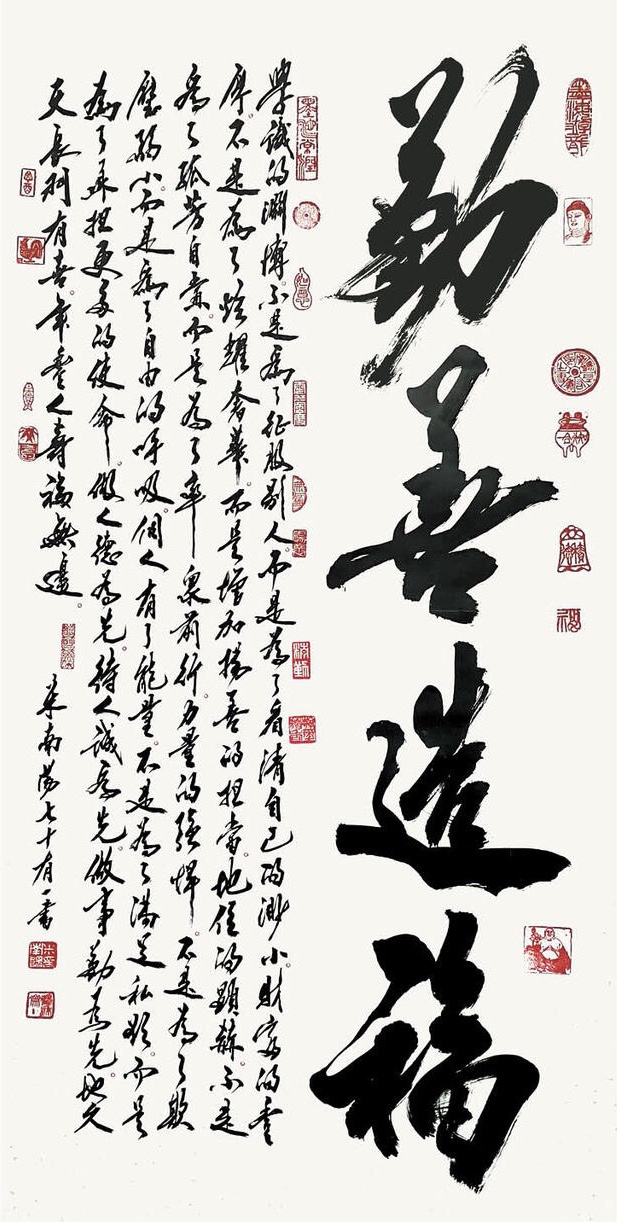 勤善造福
學識的淵博。不是爲了征服别人。而是為了看清自己的渺小。財富的豐
厚。不是為了炫耀奢華。而是增加揚善的担當。地位的顯赫。不是
爲了孤芳自賞。而是为了率衆前行。力量的強悍。不是為了欺
壓弱小。而是為了自由的呼吸。個人有了能量。不是為了滿足私欲。而是
為了承担更多的使命。做人德為先。待人誠爲先。做事勤爲先。地久
天長 有喜。年豐人壽福無邊。
朱南陽七十有一書
福